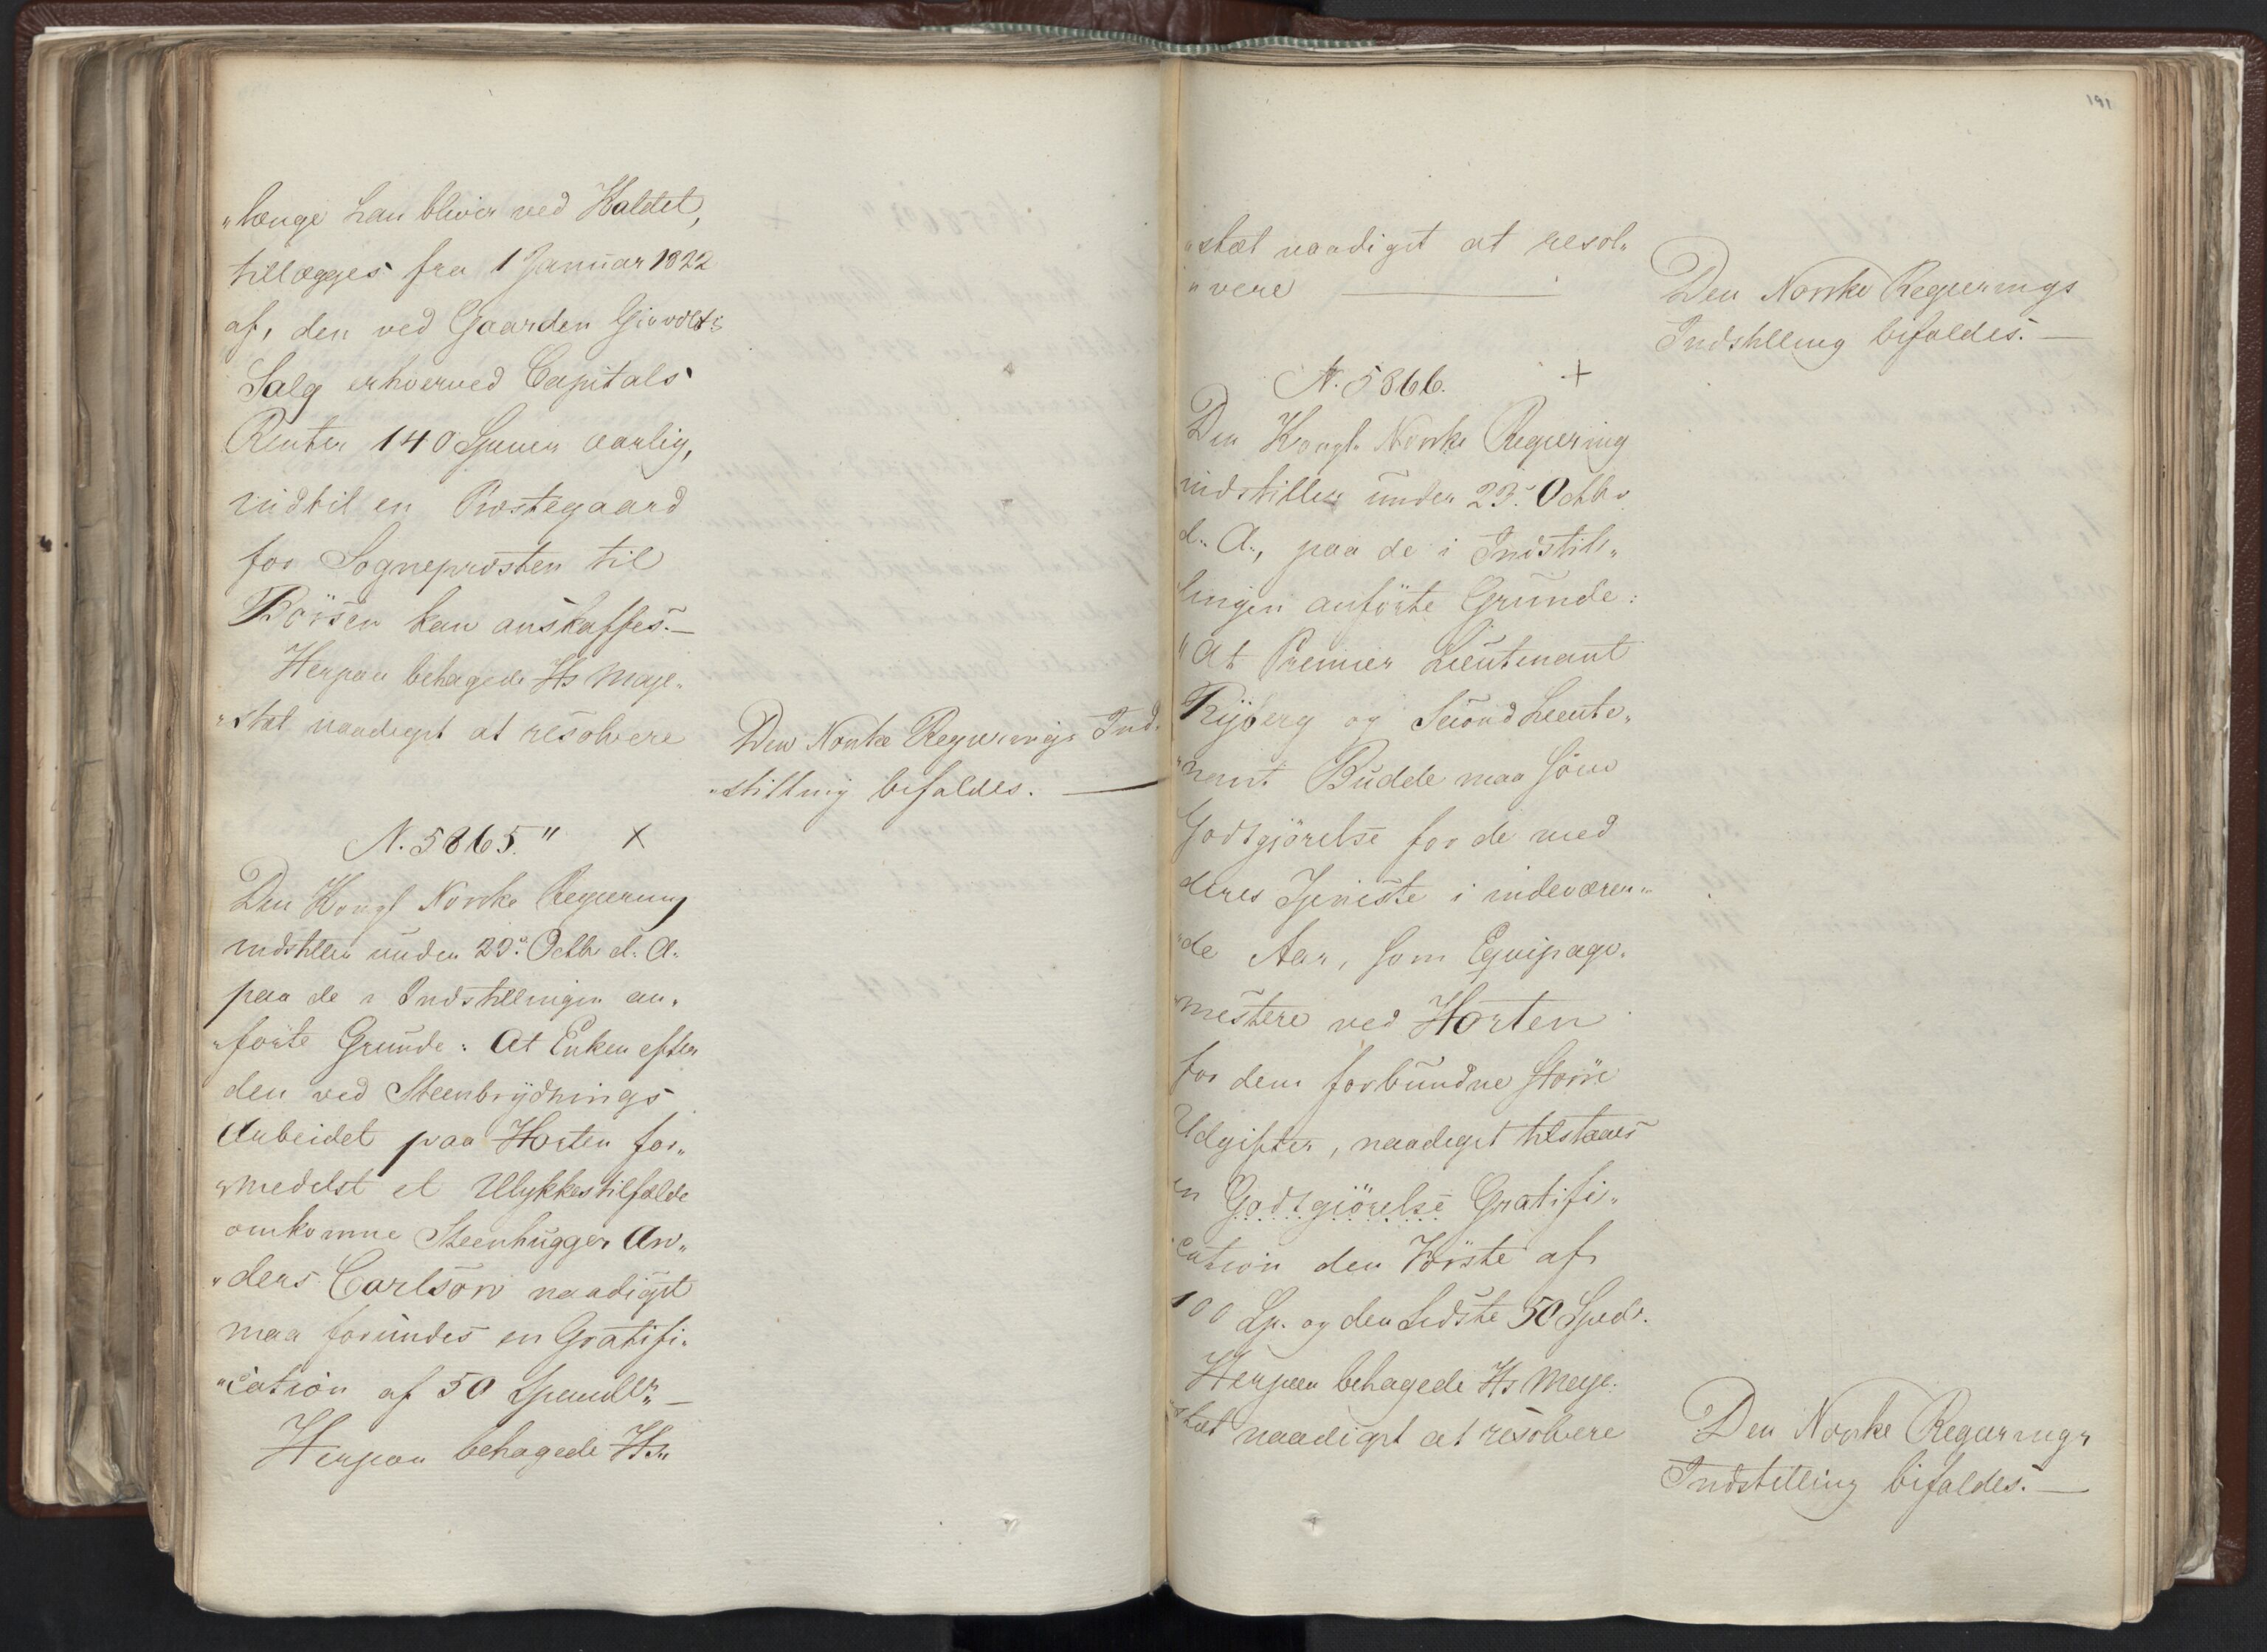 "længe han bliver ved Kaldet,
tillægges fra 1 Januar 1822
af, den ved Gaarden
Salg erhverved Capitals
Renter 140 Specier aarlig,
indtil en Præstegaard
for Sognepræsten til
Börsen kan anskaffes.—
Herpaa behagede Hs Maje„
„stæt naadigst at resolvere
Den Norske Regjerings Ind„
„stilling bifaldes. —
N. 5865." X
Den Kongl Norske Regjering
indstiller under 23de Octbr d. A.
paa de i Indstillingen an„
„förte Grunde: At Enken efter
den ved Steenbrydnings
Arbeidet paa Horten for„
„medelst et Ulykkestilfælde
omkomne Steenhugger An„
„ders Carlson naadigst
maa forundes en Gratifi„
„cation af 50 Speciedlr. —
Herpaa behagede Hs„
191
„stæt naadigst at resol„
„vere —
Den Norske Regjerings
Indstilling bifaldes. —
N. 5866. +
Den Kongl. Norske Regjering
indstiller under 23. Octbr
d. A., paa de i Indstil„
„lingen anförte Grunde:
"At Premier Lieutenant
Ryberg og Second Lieute„
„nant Budde maa som
Godtgjörelse for de med
deres Tjeneste i indeværen„
„de Aar, som Equipage„
„mestere ved Horten
for dem forbundne större
Udgifter, naadigst tilstaaes
en Godtgiörelse Gratifi„
„cation den Förste af
100 Sp. og den Sidste 50 Spdr.
Herpaa behagede Hs Maje„
„stæt naadigst at resolvere
Den Norske Regjerings
Indstilling bifaldes. —